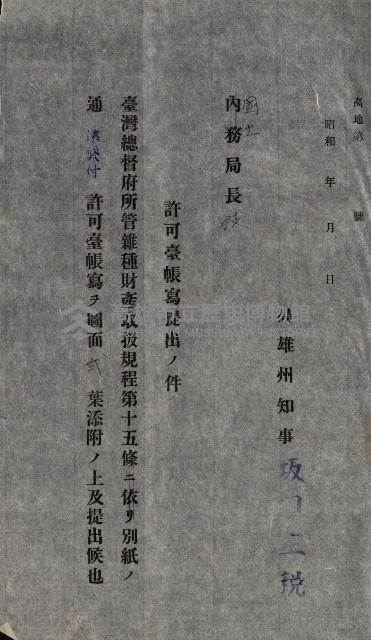 高地第　號
昭和　年　月　日
高雄州知事
內務局長
許可臺帳寫提出ノ件
臺灣總督府所管雜種財產取扱規程第十五條ニ依リ別紙ノ
通　許可臺帳寫ヲ圖面　葉添附ノ上及提出候也